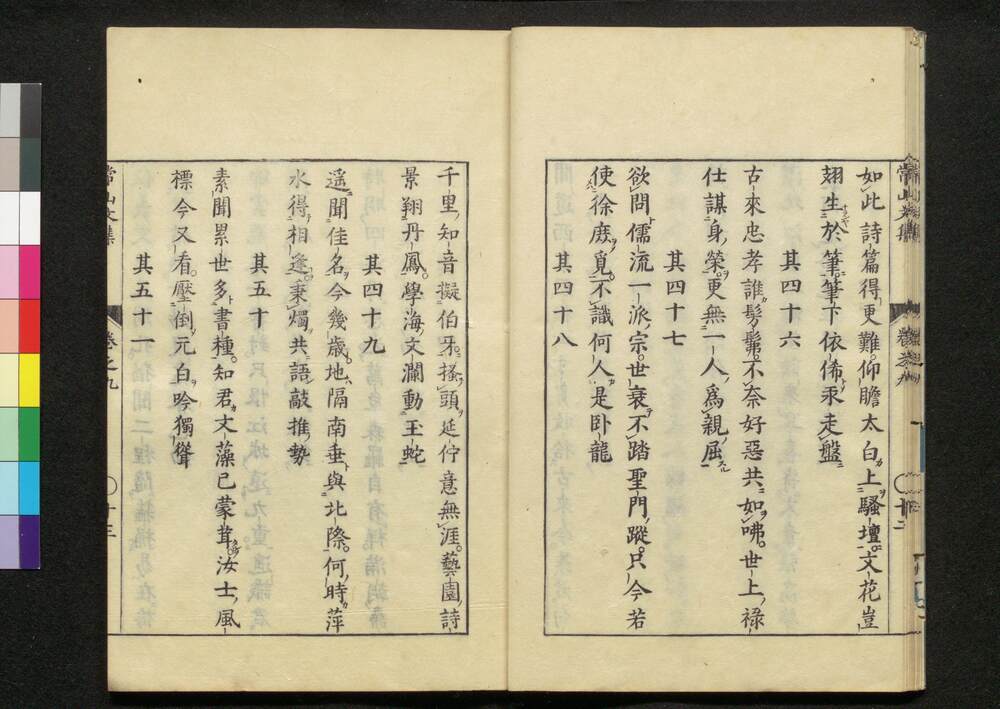 如此詩篇得更難仰瞻太白上騷壇文花豈
翅生於筆筆下依俙汞走盤
其四十六
古來忠孝誰髣髴不奈好惡共如咈世上祿
仕謀身榮更無一人爲親屈
其四十七
欲問儒流一派宗世衰不踏聖門蹤只今若
使徐庶覓不識何人是卧龍
其四十八
千里知音擬伯牙搔頭延佇意無涯藝園詩
景翔丹鳳學海文瀾動玉蛇
其四十九
遥聞佳名今幾歳地隔南垂與北際何時萍
水得相逢秉燭共語敲推勢
其五十
素聞累世多書種知君文藻已蒙茸汝士風
標今又看壓倒元白吟獨聳
其五十一
常山文集
卷之九
十三